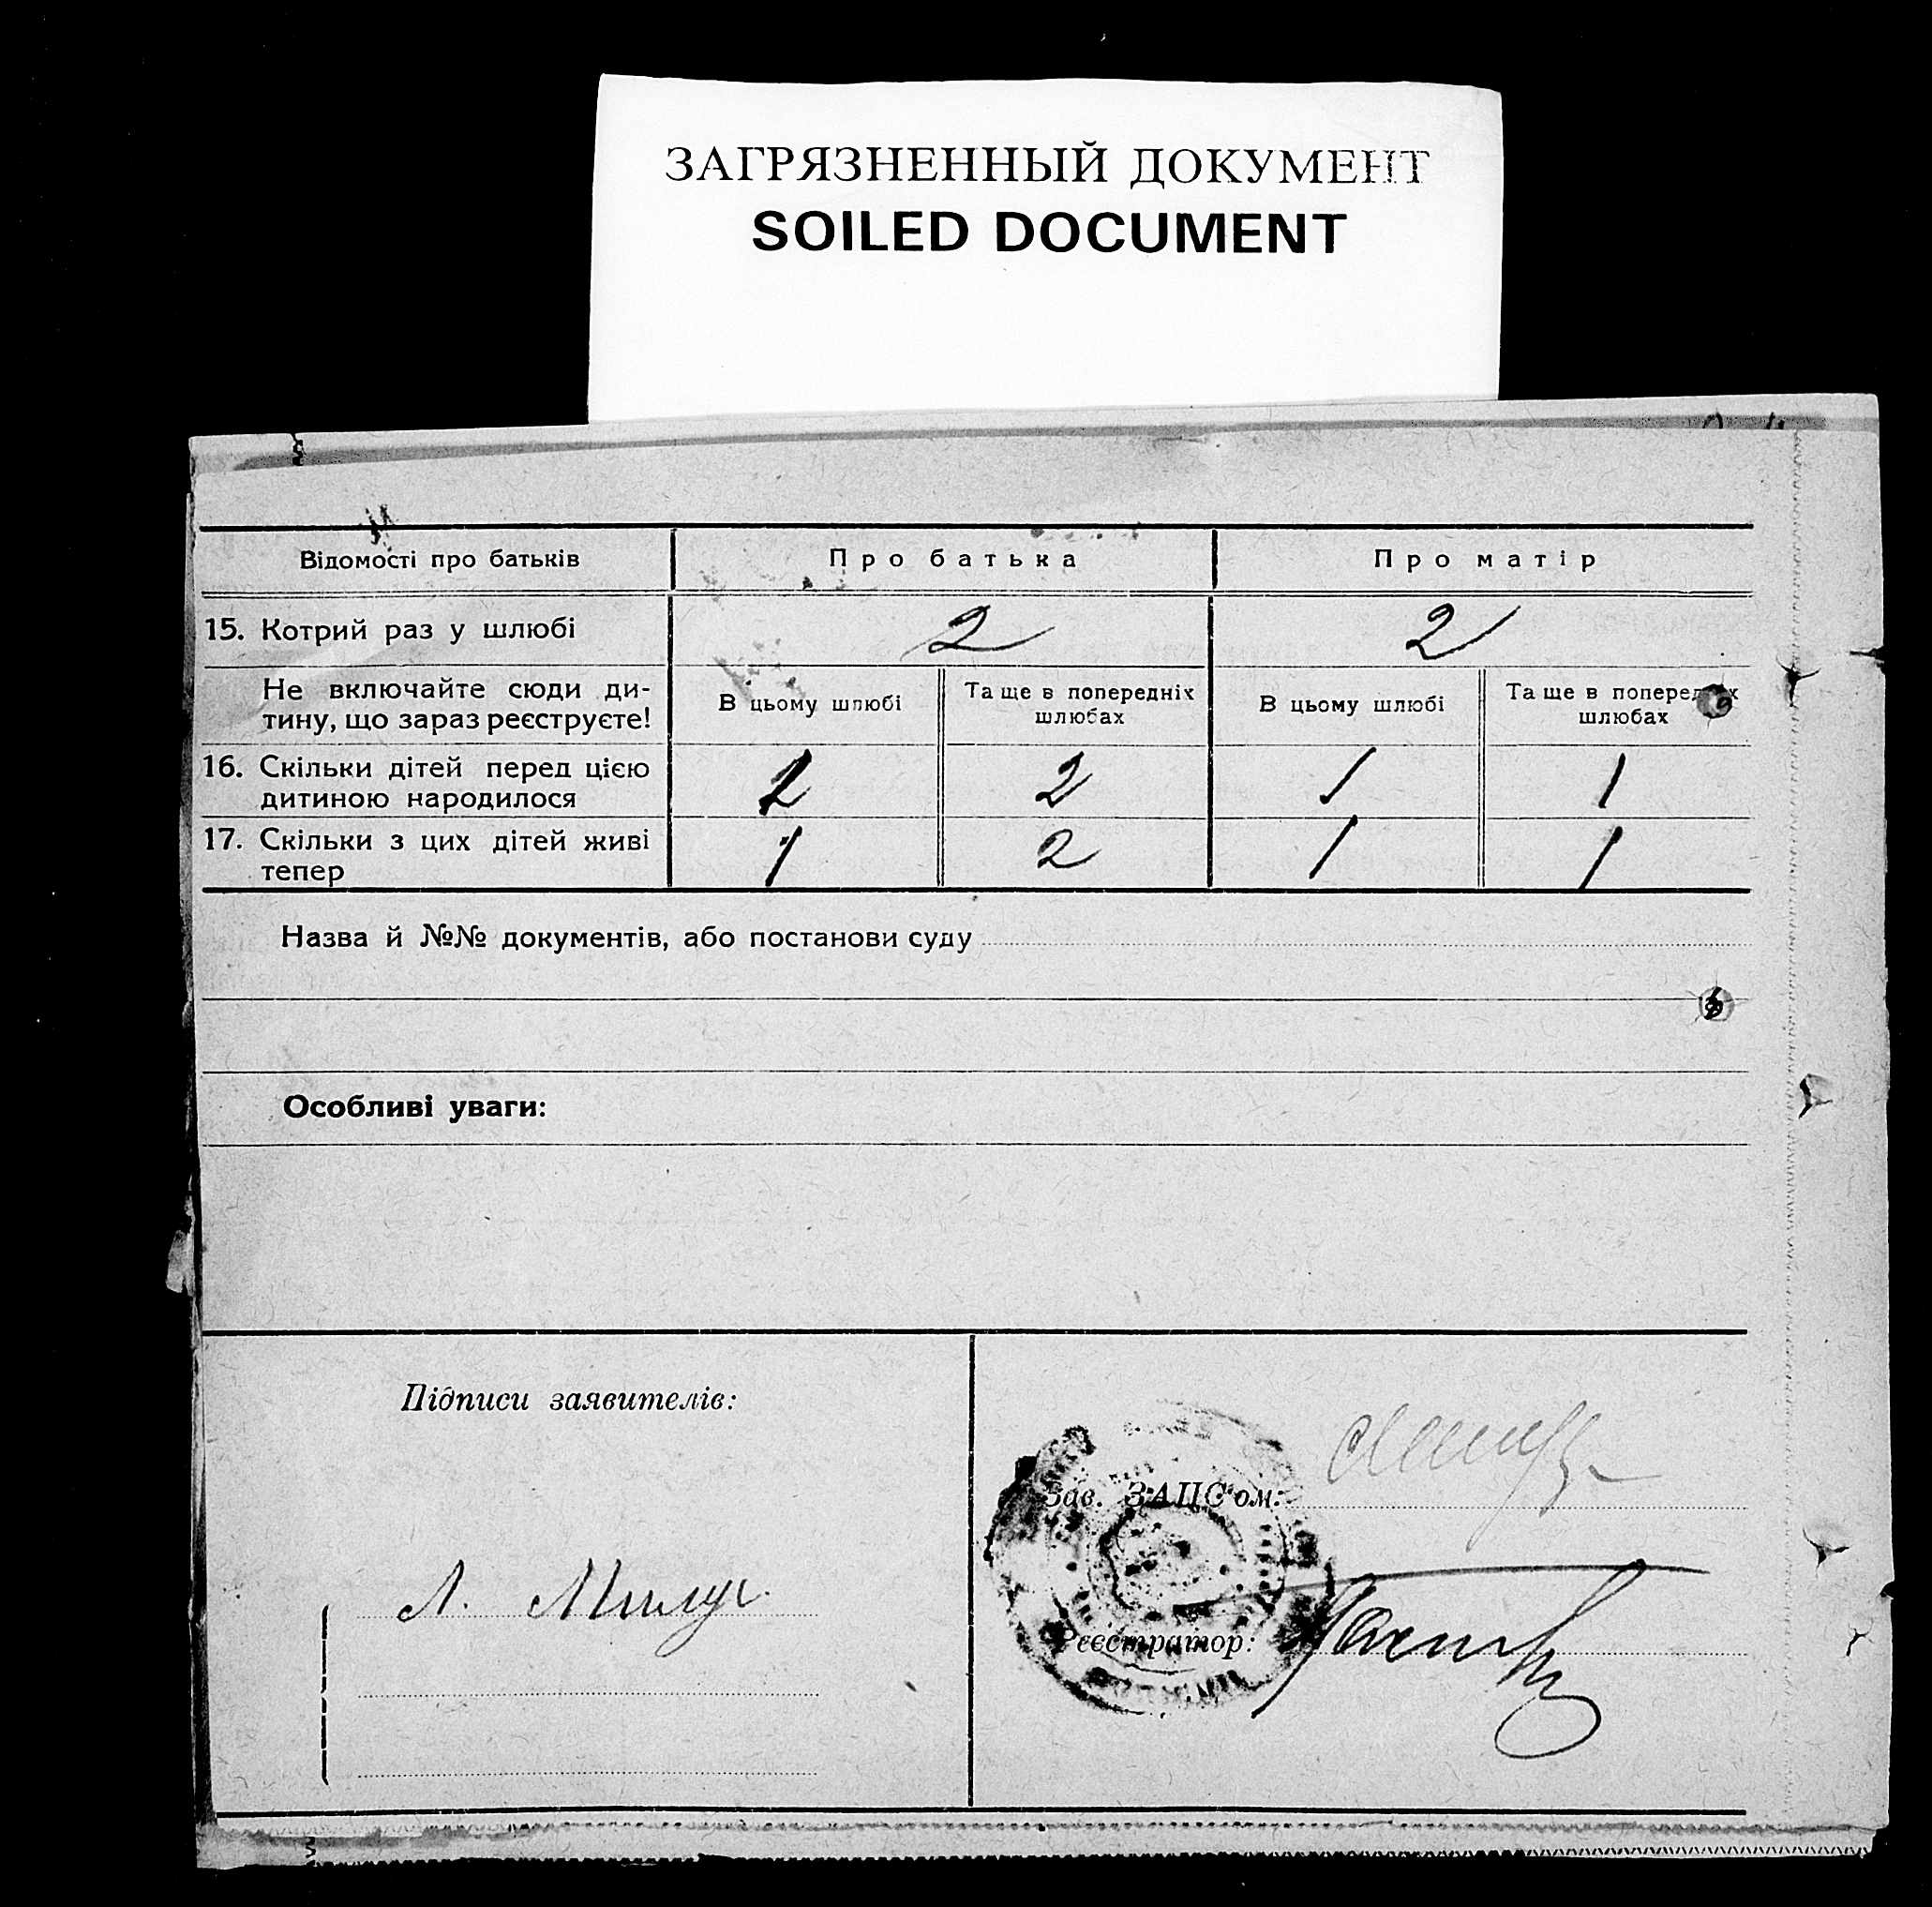 ЗАГРЯЗНЕННЫЙ ДОКУМЕНТ
SOILED DOCUMENT
Відомості про батьків Про батька Про матір
15. Котрий раз у шлюбі 2 2
Не включайте сюди ди-
тину, що зараз реєструєте!
В цьому шлюбі
Та ще в попередніх
шлюбах
В цьому шлюбі
Та ще в попередніх
шлюбах
16. Скільки дітей перед цією
дитиною народилося
2 1 1
17. Скільки з цих дітей живі
тепер
1 2 1 1
Назва й №№ документів, або постанови суду
Особливі уваги:
Підписи заявителів:
Зав. ЗАЦС'ом:
Л.
Реєстратор: